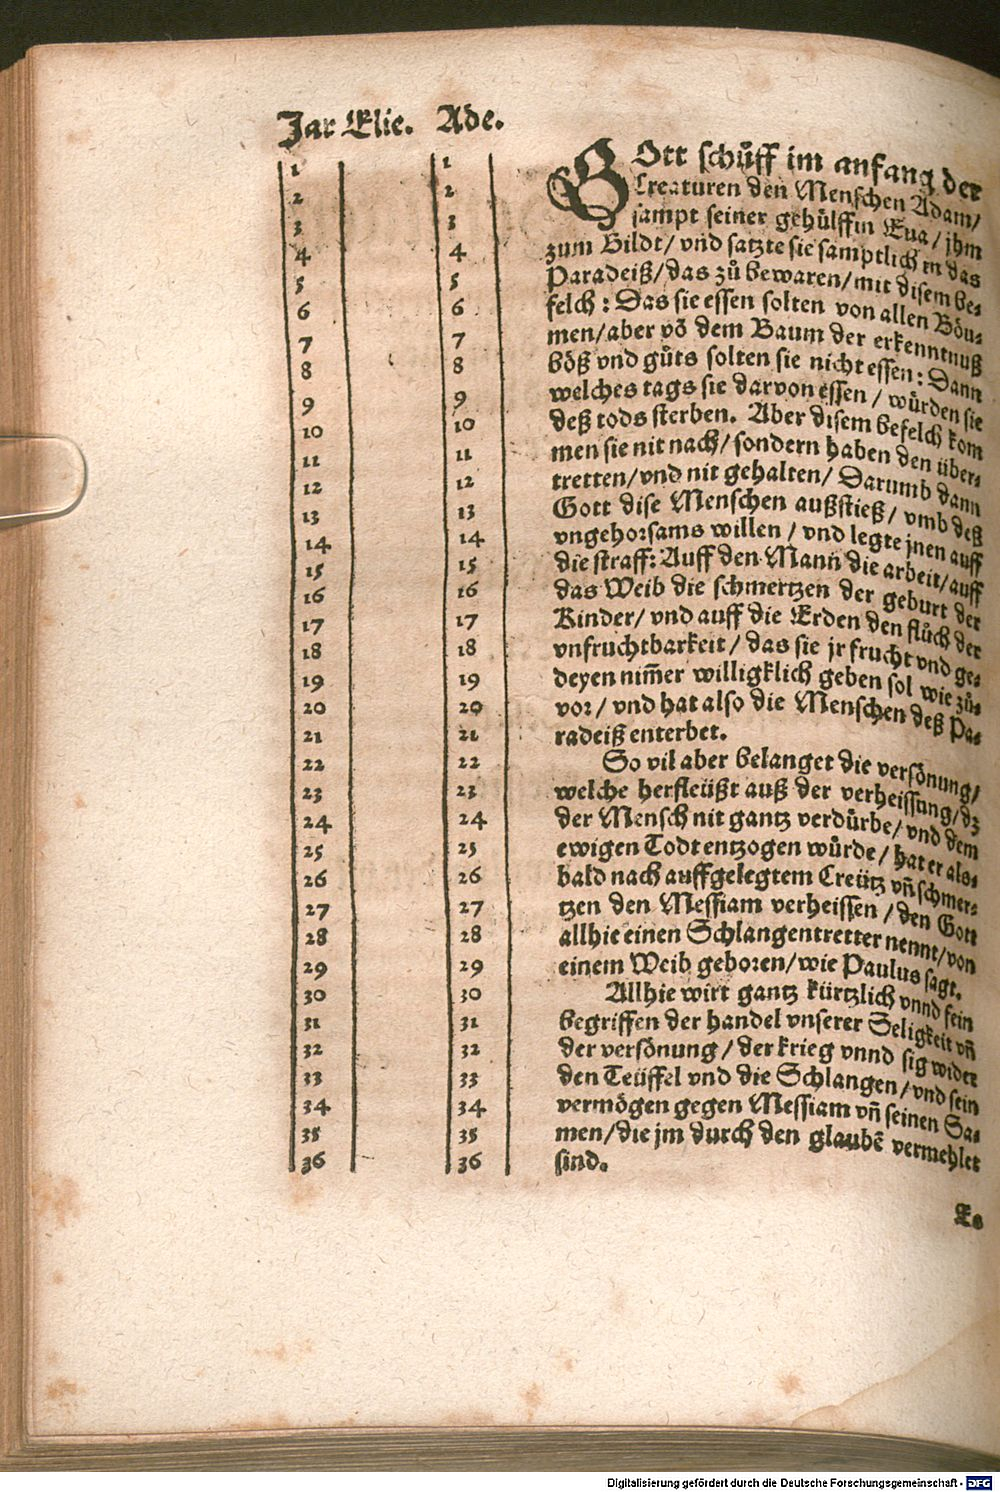 Jar Elie. Ade.
1 1
2 2
3 3
4 4
5 5
6 6
7 7
8 8
9 9
10 10
11 11
12 12
13 13
14 14
15 15
16 16
17 17
18 18
19 19
20 20
21 21
22 22
23 23
24 24
25 25
26 26
27 27
28 28
29 29
30 30
31 31
32 32
33 33
34 34
35 35
36 36
GOtt schůff im anfang der
Creaturen den Menschen Adam/
sampt seiner gehülffin Eua/ jhm
zum Bildt/ vnd satzte sie samptlich in das
Paradeiß/ das zů bewaren/ mit disem be-
felch: Das sie essen solten von allen Böu-
men/ aber võ dem Baum der erkenntnuß
böß vnd gůts solten sie nicht essen: Dann
welches tags sie darvon essen/ würden sie
deß tods sterben. Aber disem befelch kom
men sie nit nach/ sondern haben den über-
tretten/ vnd nit gehalten/ Darumb dann
Gott dise Menschen außstieß/ vmb deß
vngehorsams willen/ vnd legte jnen auff
die straff: Auff den Mann die arbeit/ auff
das Weib die schmertzen der geburt der
Kinder/ vnd auff die Erden den flůch der
vnfruchtbarkeit/ das sie jr frucht vnd ge-
deyen nim̃er willigklich geben sol wie zů-
vor/ vnd hat also die Menschen deß Pa-
radeiß enterbet.
So vil aber belanget die versönung/
welche herfleüßt auß der verheissung/ dz
der Mensch nit gantz verdürbe/ vnd dem
ewigen Todt entzogen würde/ hat er als-
bald nach auffgelegtem Creütz vñ schmer-
tzen den Messiam verheissen/ den Gott
allhie einen Schlangentretter nennt/ von
einem Weib geboren/ wie Paulus sagt.
Allhie wirt gantz kürtzlich vnnd fein
begriffen der handel vnserer Seligkeit vñ
der versönung/ der krieg vnnd sig wider
den Teüffel vnd die Schlangen/ vnd sein
vermögen gegen Messiam vñ seinen Sa-
men/ die jm durch den glaubẽ vermehlet
sind.
Es
Digitalisierung gefördert durch die Deutsche Forschungsgemeinschaft - DFG